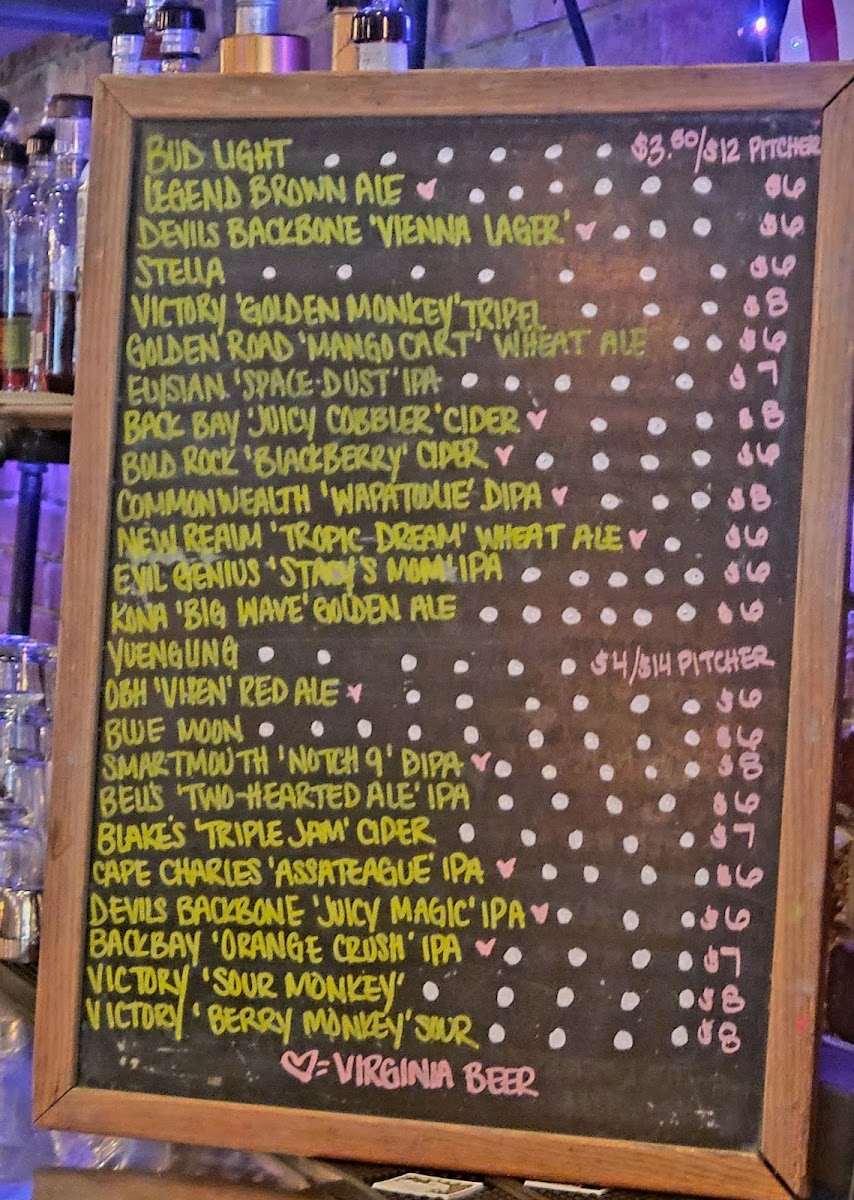 BUD LIGHT $3.50/$12 PITCHER
LEGEND BROWN ALE ♥ $6
DEVILS BACKBONE 'VIENNA LAGER' ♥ $6
STELLA $6
VICTORY 'GOLDEN MONKEY' TRIPEL $8
GOLDEN ROAD 'MANGO CART' WHEAT ALE $6
ELYSIAN 'SPACE DUST' IPA $7
BACK BAY 'JUICY COBBLER' CIDER ♥ $8
BOLD ROCK 'BLACKBERRY' CIDER ♥ $6
COMMONWEALTH 'WAPATOOLIE' DIPA ♥ $8
NEW REALM 'TROPIC-DREAM' WHEAT ALE ♥ $6
EVIL GENIUS 'STACY'S MOM' IPA $6
KONA 'BIG WAVE' GOLDEN ALE $6
YUENGLING $4/$14 PITCHER
OBH 'VHEN' RED ALE ♥ $6
BLUE MOON $6
SMARTMOUTH 'NOTCH 9' DIPA ♥ $8
BELL'S 'TWO-HEARTED ALE' IPA $6
BLAKE'S 'TRIPLE JAM' CIDER $7
CAPE CHARLES 'ASSATEAGUE' IPA ♥ $6
DEVILS BACKBONE 'JUICY MAGIC' IPA ♥ $6
BACKBAY 'ORANGE CRUSH' IPA ♥ $7
VICTORY 'SOUR MONKEY' $8
VICTORY 'BERRY MONKEY' SOUR $8
♥ = VIRGINIA BEER